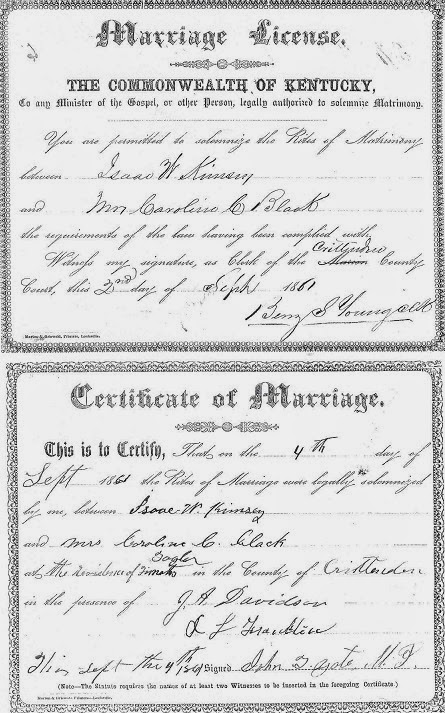 Marriage License.
THE COMMONWEALTH OF KENTUCKY,
To any Minister of the Gospel, or other Person, legally authorized to solemnize Matrimony.
You are permitted to solemnize the Rites of Matrimony
between Isaac W Kimsey
and Mrs Caroline C Black
the requirements of the law having been complied with.
Crittenden
Witness my signature, as Clerk of the Marion County
Court, this 2nd day of Sept 1861
Benj S Young
Certificate of Marriage.
This is to Certify, That on the 4th day of
Sept 1861 the Rites of Marriage were legally solemnized
by me, between Isaac W. Kimsey
and Mrs Caroline C. Clack
at the Residence of in the County of Crittenden
in the presence of J. A. Davidson
L Franklin
This Sept the 4th 1861 Signed John
(Note—The Statute requires the names of at least two Witnesses to be inserted in the foregoing Certificate.)